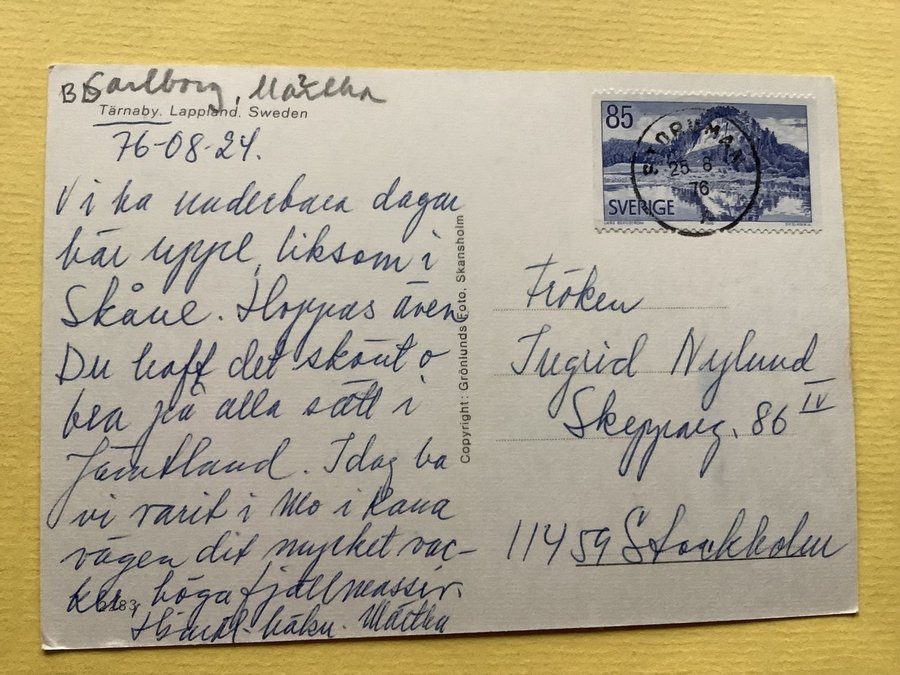 Carlborg, Märtha
Tärnaby. Lappland. Sweden
76-08-24.
Vi ha underbara dagar
här uppe, liksom i
Skåne. Hoppas även
Du haft det skönt o
bra på alla sätt i
Jämtland. Idag ha
vi varit i Mo i Rana
vägen dit mycket vac-
ker, höga fjällmassiv.
Märtha
Copyright: Grönlunds Foto, Skansholm
85
SVERIGE
STORUMAN
25 8
76
A
Fröken
Ingrid Nylund
Skepparg. 86 IV
11459 Stockholm